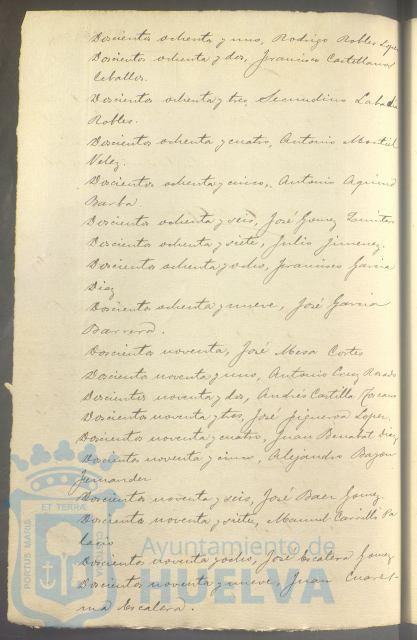 Doscientos ochenta y uno, Rodrigo Robles Lopez
Doscientos ochenta y dos, Francisco Castellano
Ceballos.
Doscientos ochenta y tres, Secundino Labadia
Robles.
Doscientos ochenta y cuatro, Antonio Montiel
Velez.
Doscientos ochenta y cinco, Antonio
Barba
Doscientos ochenta y seis, José Gomez
Doscientos ochenta y siete, Julio Jimenez.
Doscientos ochenta y ocho, Francisco Garcia
Diaz
Doscientos ochenta y nueve, José Garcia
Barrera.
Doscientos noventa, José Mesa Cortes
Doscientos noventa y uno, Antonio Cruz Rosado
Doscientos noventa y dos, Andrés Castilla Toscano
Doscientos noventa y tres, José Figueroa Lopez.
Doscientos noventa y cuatro, Juan Benabat Diaz
Doscientos noventa y cinco, Alejandro Bazan
Fernandez
Doscientos noventa y seis, José Baez Gomez.
Doscientos noventa y siete, Manuel Carrillo Pa
lacio
Doscientos noventa y ocho, José Escalera Gomez
Doscientos noventa y nueve, Juan Cuares-
ma Escalera.
PORTUS MARIS ET TERRÆ
Ayuntamiento de
HUELVA